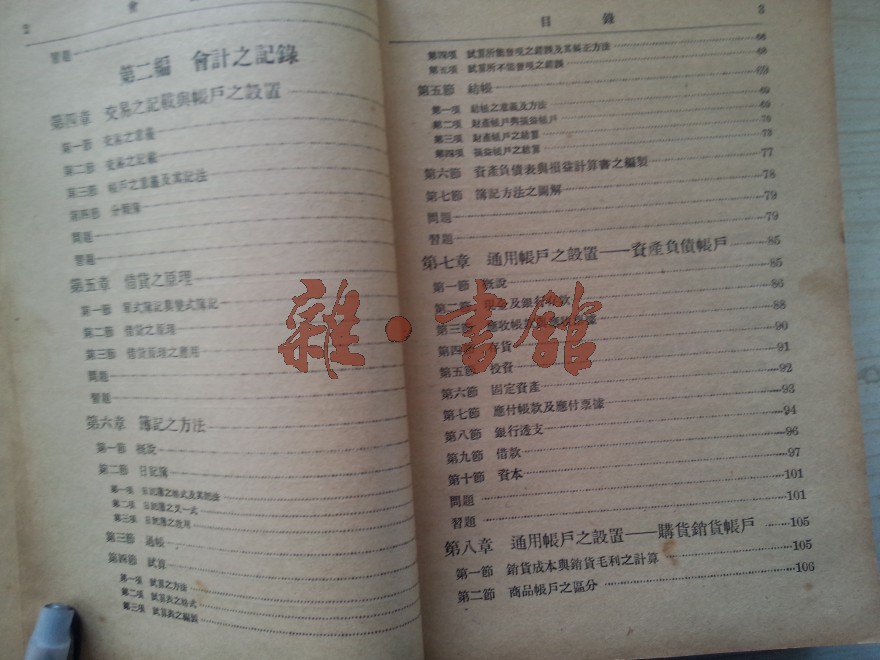 2
會
習題
第二編 會計之記錄
第四章 交易之記載與帳戶之設置
第一節 交易之意義
第二節 交易之記載
第三節 帳戶之意義及其記法
第四節 分類簿
問題
習題
第五章 借貸之原理
第一節 單式簿記與雙式簿記
第二節 借貸之原理
第三節 借貸原理之應用
問題
習題
第六章 簿記之方法
第一節 概說
第二節 日記簿
第一項 日記簿之格式及其記法
第二項 日記簿之又一式
第三項 日記簿之效用
第三節 過帳
第四節 試算
第一項 試算之方法
第二項 試算表之格式
第三項 試算表之編製
目錄 3
第四項 試算所能發現之錯誤及其糾正方法 66
第五項 試算所不能發現之錯誤 68
第五節 結帳 69
第一項 結帳之意義及方法
第二項 財產帳戶與損益帳戶
第三項 財產帳戶之結算
第四項 損益帳戶之結算
第六節 資產負債表與損益計算書之編製 77
第七節 簿記方法之圖解 78
問題 79
習題 79
第七章 通用帳戶之設置——資產負債帳戶 85
第一節 概說 85
第二節 現金及銀行存款 86
第三節 應收帳款及應收票據 88
第四節 存貨 90
第五節 投資 91
第六節 固定資產 92
第七節 應付帳款及應付票據 93
第八節 銀行透支 94
第九節 借款 96
第十節 資本 97
問題 101
習題 101
第八章 通用帳戶之設置——購貨銷貨帳戶 105
第一節 銷貨成本與銷貨毛利之計算 105
第二節 商品帳戶之區分 106
雜·書館